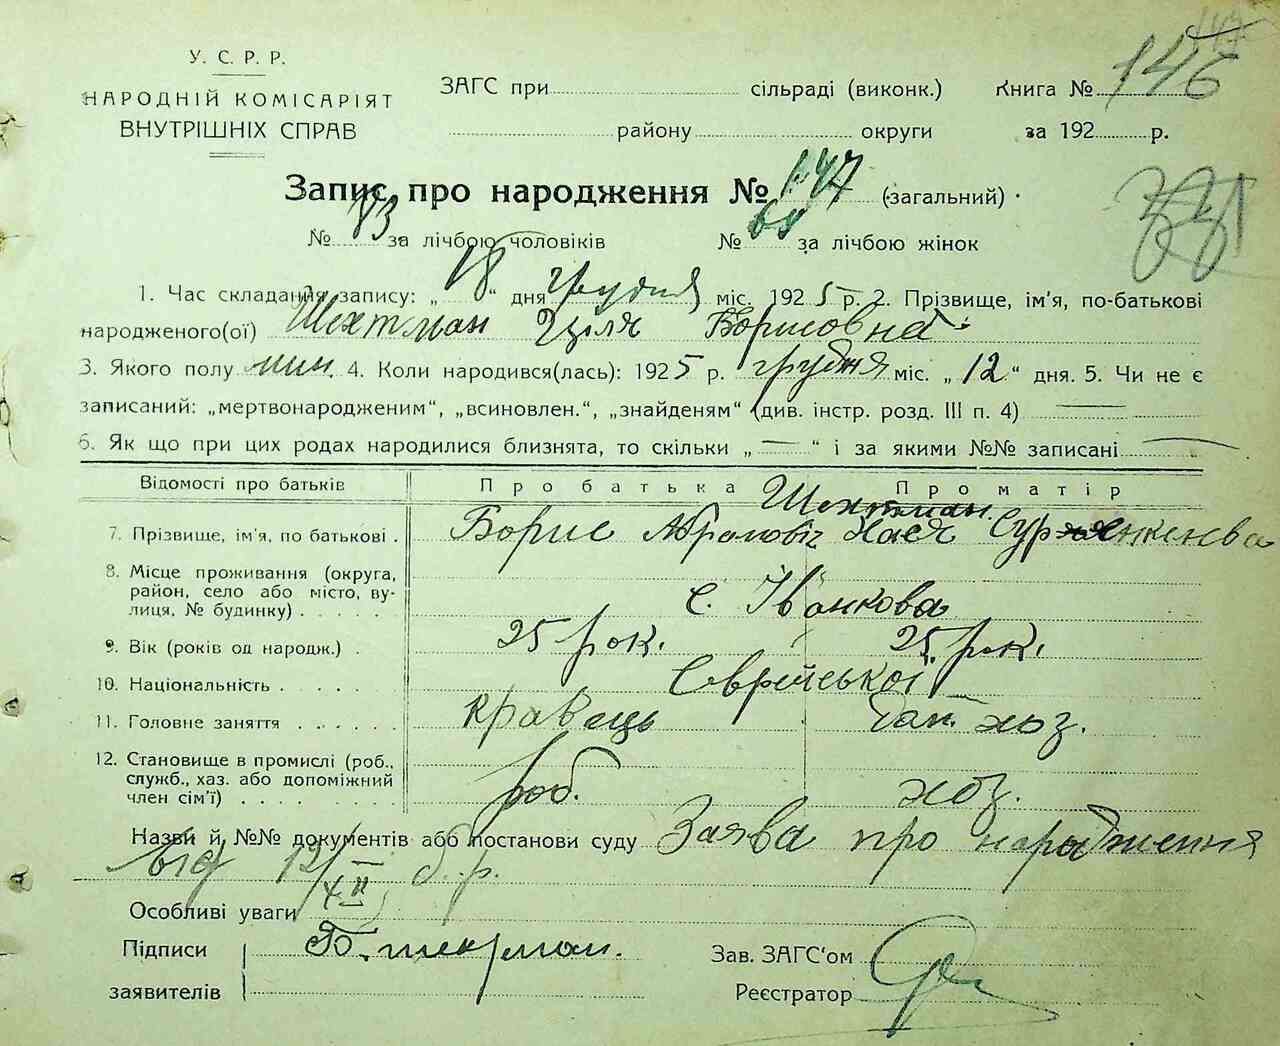 146
У. С. Р. Р.
НАРОДНІЙ КОМІСАРІЯТ
ВНУТРІШНІХ СПРАВ
ЗАГС при сільраді (виконк.) Книга №
району округи за 192 р.
Запис про народження № 147 (загальний)
№ 83 за лічбою чоловіків № за лічбою жінок
1. Час складання запису: „18“ дня грудня міс. 1925 р. 2. Прізвище, ім'я, по-батькові
народженого(ої) Шехтман Ціля Борисовна
3. Якого полу жин. 4. Коли народився(лась): 1925 р. грудня міс. „12“ дня. 5. Чи не є
записаний: „мертвонародженим“, „всиновлен.“, „знайденям“ (див. інстр. розд. III п. 4) —
6. Як що при цих родах народилися близнята, то скільки „—“ і за якими №№ записані —
Відомості про батьків Про батька Про матір
Шехтман
7. Прізвище, ім'я, по батькові . Борис Абрамович Хася
8. Місце проживання (округа,
район, село або місто, ву-
лиця, № будинку) . . . . . с. Іванкова
9. Вік (років од народж.) . 25 рок. 25 рок.
10. Національність . . . . . Єврейської
11. Головне заняття . . . . . кравець дом. хоз.
12. Становище в промислі (роб.,
служб., хаз. або допоміжний
член сім'ї) . . . . . . . роб. хоз.
Назви й №№ документів або постанови суду Заява про народження
від 12/XII б. р.
Особливі уваги
Підписи
заявителів
Зав. ЗАГС'ом
Реєстратор